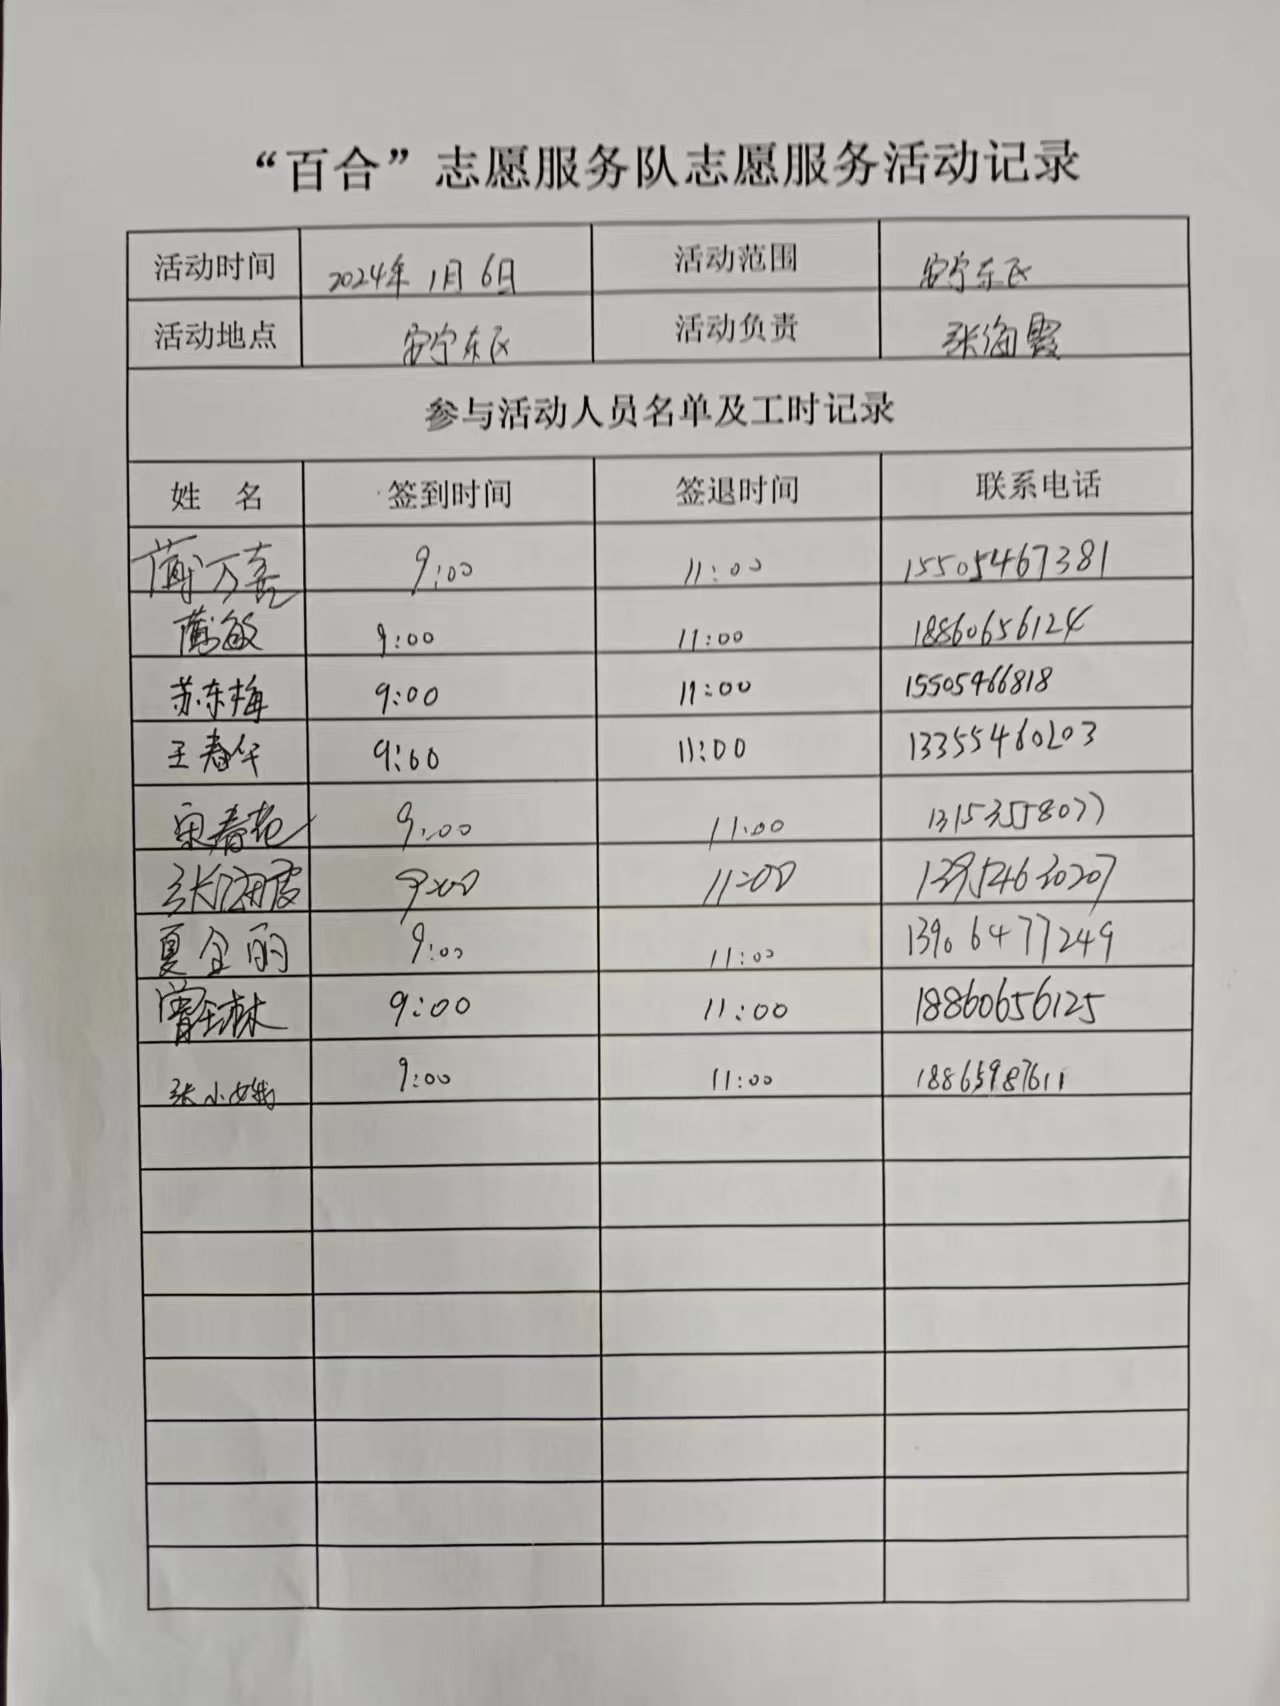 “百合”志愿服务队志愿服务活动记录
活动时间 2024年1月6日 活动范围 安宁东区
活动地点 安宁东区 活动负责 张海霞
参与活动人员名单及工时记录
姓 名 签到时间 签退时间 联系电话
薄万喜 9:00 11:00 15505467381
薄敏 9:00 11:00 18860656124
苏东梅 9:00 11:00 15505466818
王春华 9:00 11:00 13355460203
宋春艳 9:00 11:00 13153558077
张海霞 9:00 11:00 13954630207
夏全丽 9:00 11:00 13906477249
曾玉林 9:00 11:00 18860656125
张小娥 9:00 11:00 18865987611